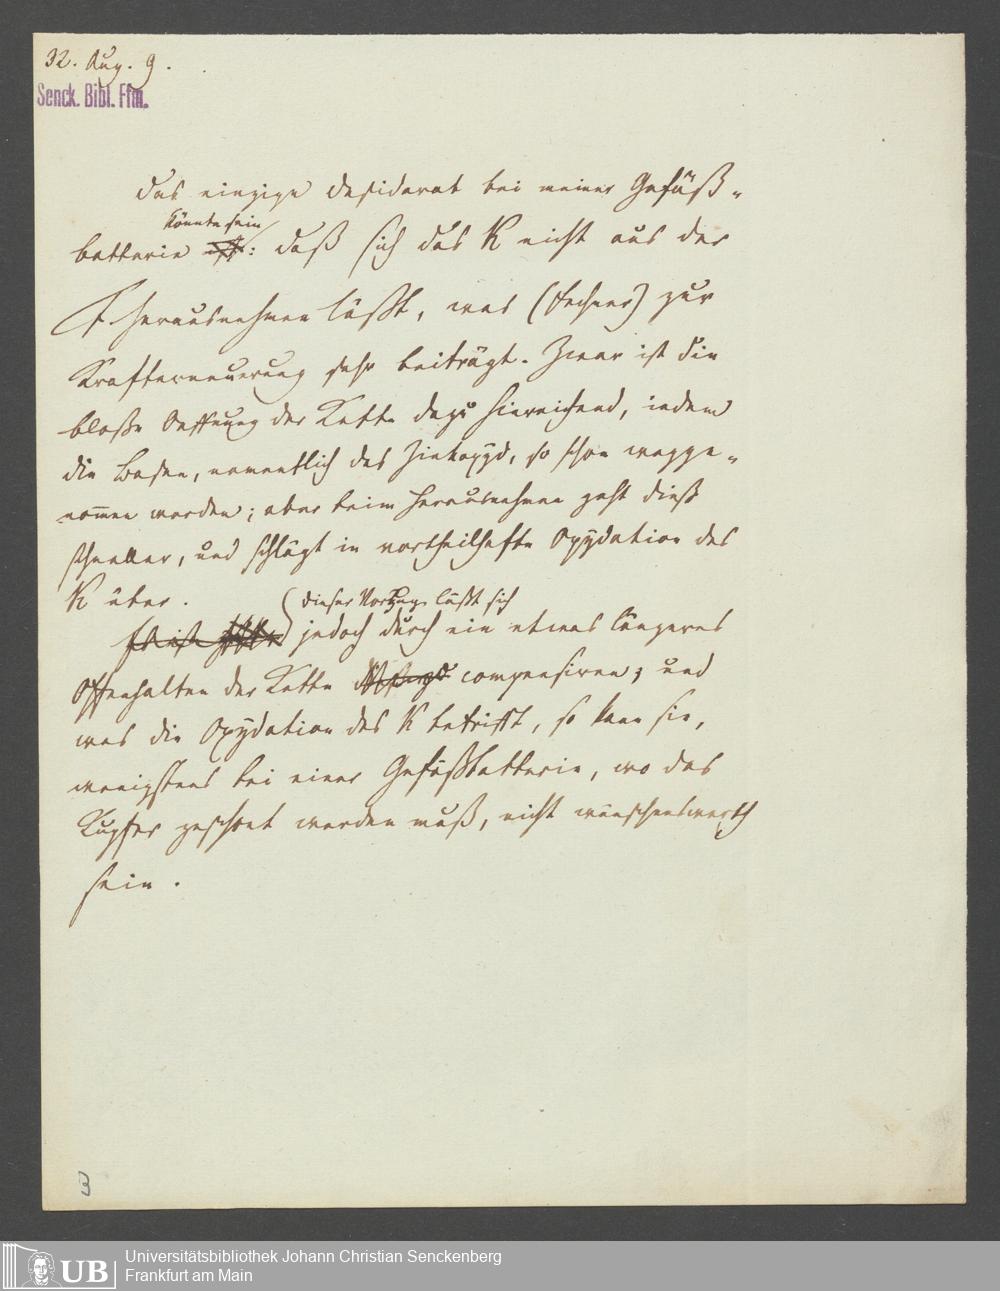 32. Aug. 9.
Senck. Bibl. Ffm.
Das einzige Desiderat bei meiner Gefäß-
könnte sein
batterie ist: daß sich das K nicht aus der
F. herausnehmen läßt, was (Fechner) zur
Krafterneuerung sehr beiträgt. Zwar ist die
bloße Oeffnung der Kette dazu hinreichend, indem
die Basen, namentlich das Zinkoxyd, so schon wegge-
nom̅en werden; aber beim Herausnehmen geht dieß
schneller, und schlägt in vortheilhafte Oxydation des
K über.
dieser Vorzug läßt sich
Es ist jedoch durch ein etwas längeres
Offenhalten der Kette compensiren; und
was die Oxydation des K betrifft, so kann sie,
wenigstens bei einer Gefäßbatterie, wo das
Kupfer geschont werden muß, nicht wünschenswerth
sein.
3
UB
Universitätsbibliothek Johann Christian Senckenberg
Frankfurt am Main